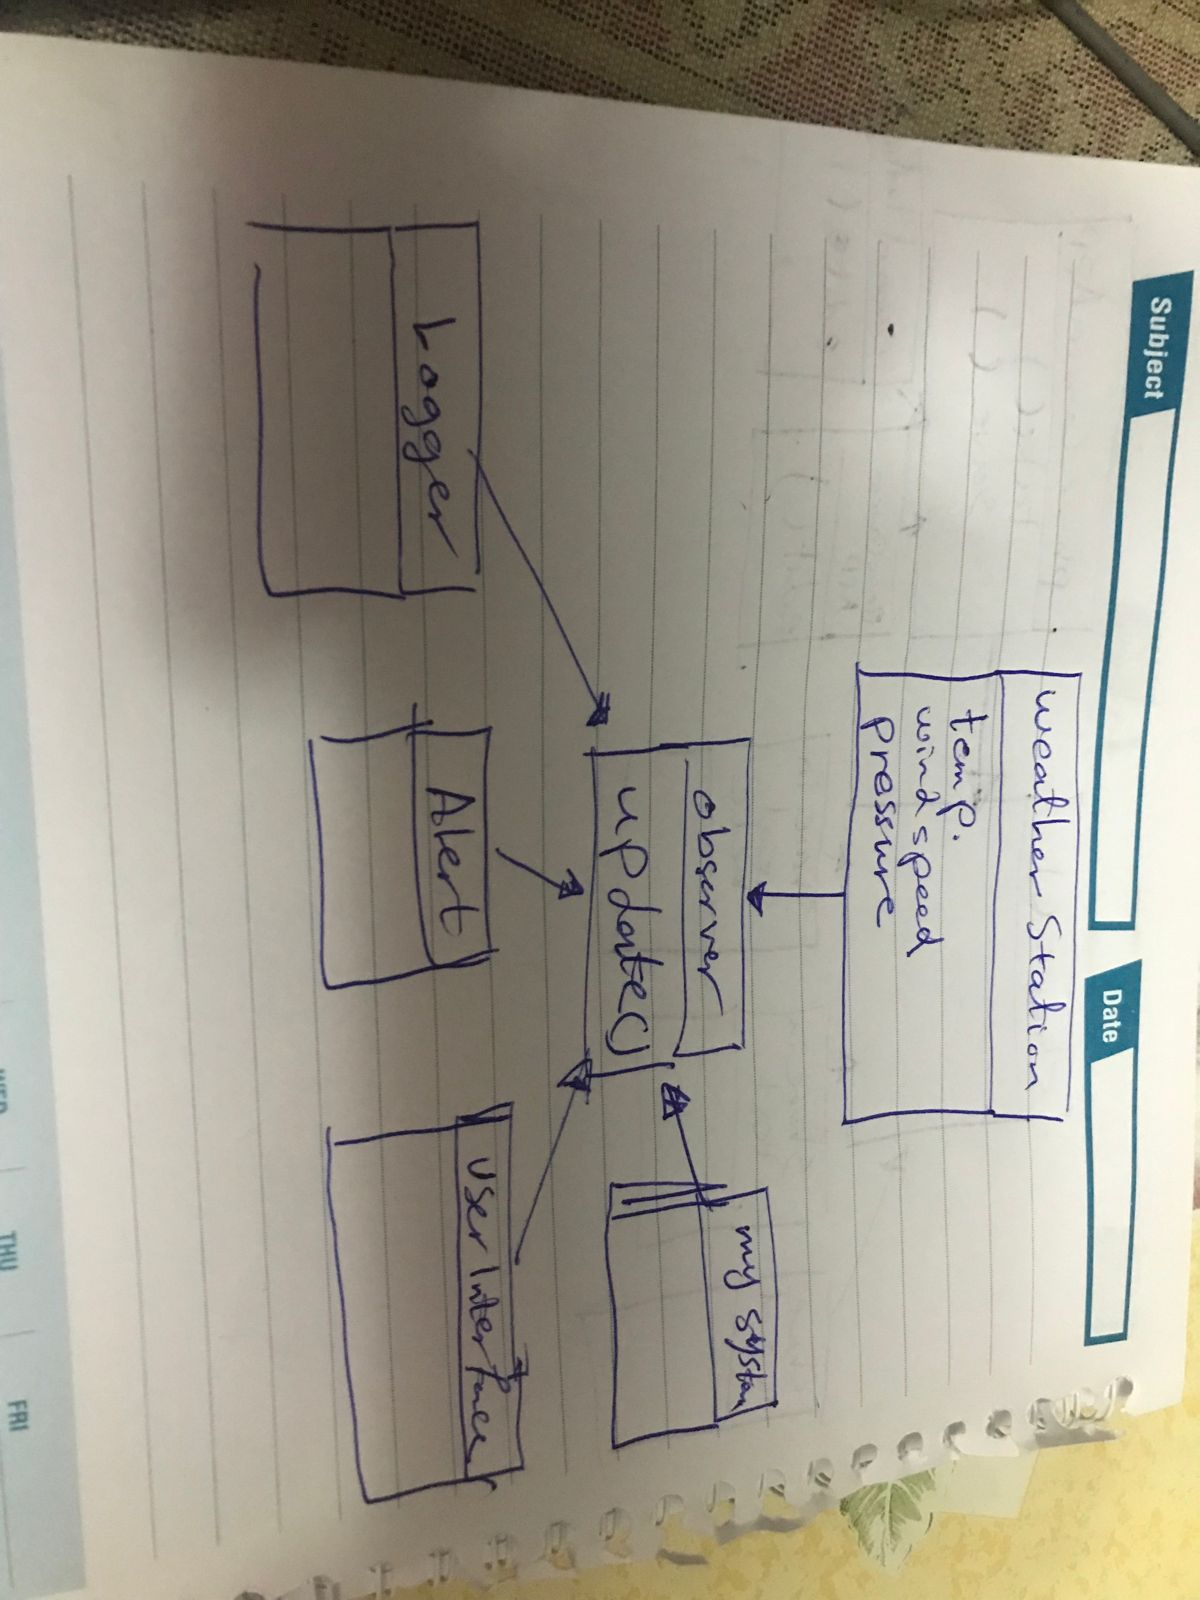 Subject
Date
weather Station
temp.
wind speed
pressure
observer
update()
my system
Logger
Alert
User Interface
THU
FRI